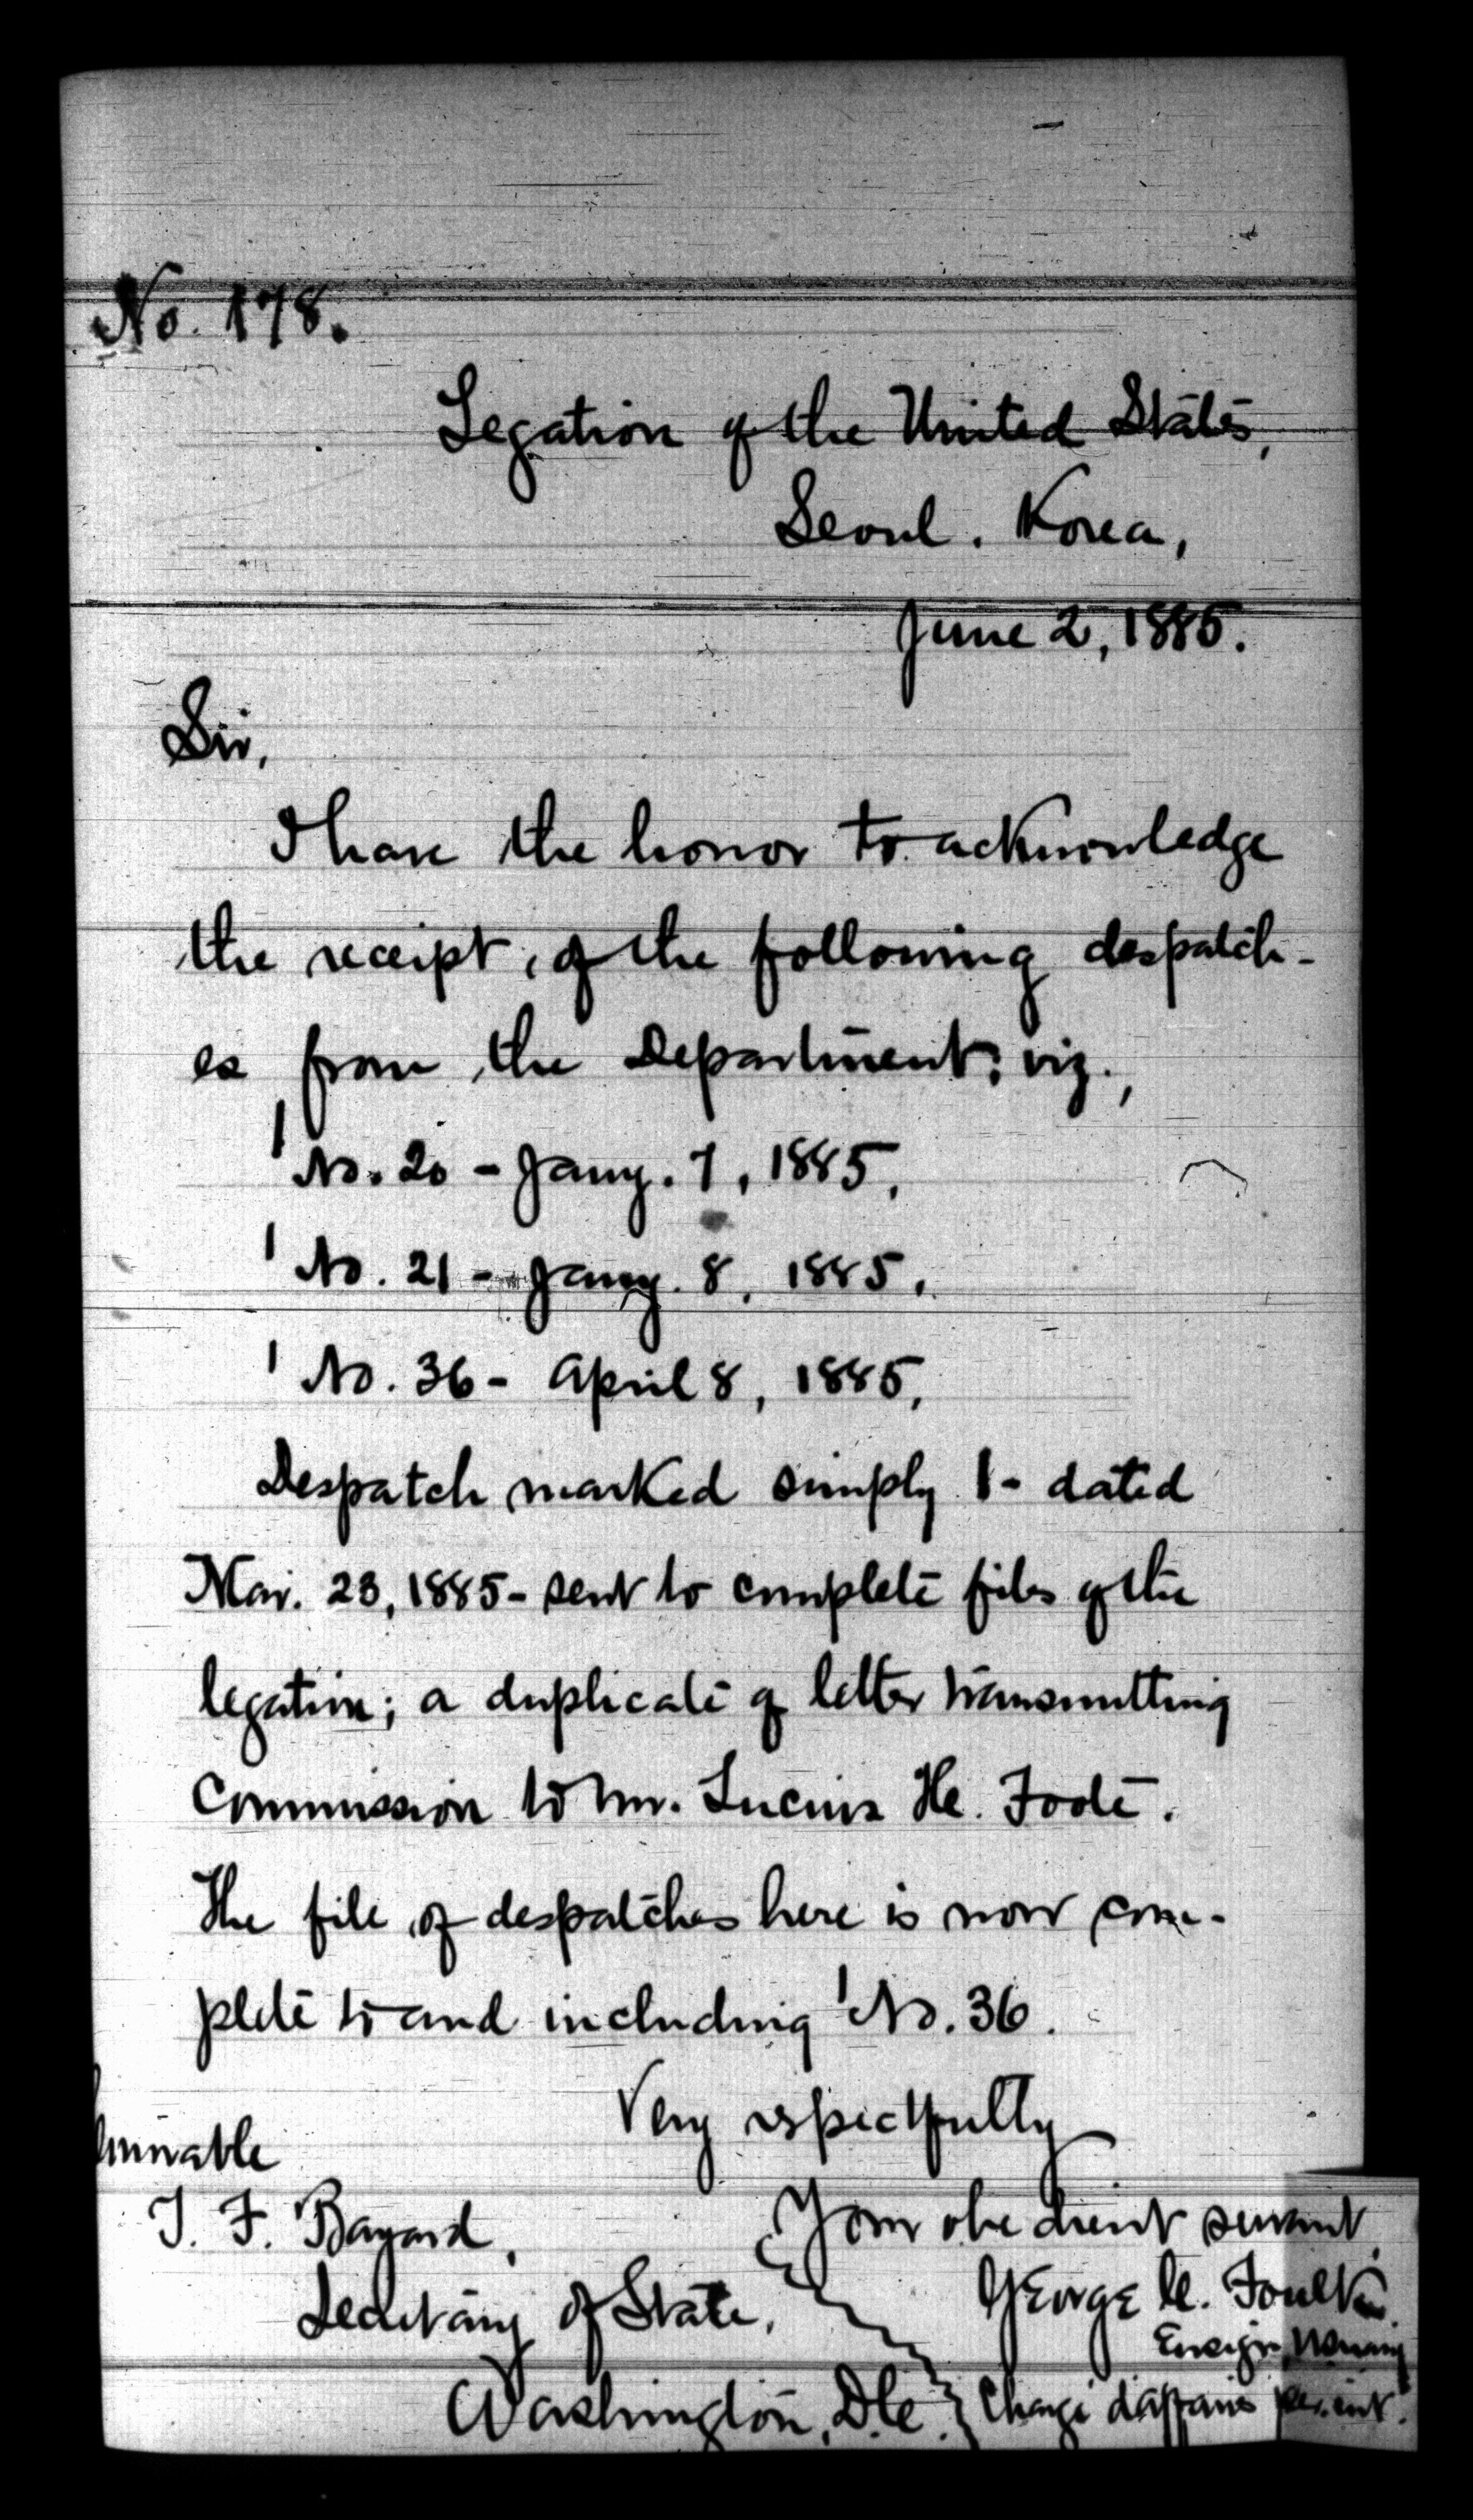 No. 178.
Legation of the United States,
Seoul. Korea,
June 2, 1885.
Sir,
I have the honor to acknowledge
the receipt, of the following despatch-
es from the Department; viz.,
No. 20 - Jany. 7, 1885,
No. 21 - Jany. 8, 1885,
No. 36 - April 8, 1885,
Despatch marked simply 1 - dated
Mar. 23, 1885 - sent to complete files of the
legation; a duplicate of letter transmitting
Commission to Mr. Lucius H. Foote.
The file of despatches here is now com-
plete to and including No. 36.
Very respectfully
Your obedient servant,
George C. Foulk
Ensign, U.S. Navy
Chargé d'affaires per. int.
T. F. Bayard,
Secretary of State,
Washington, D.C.